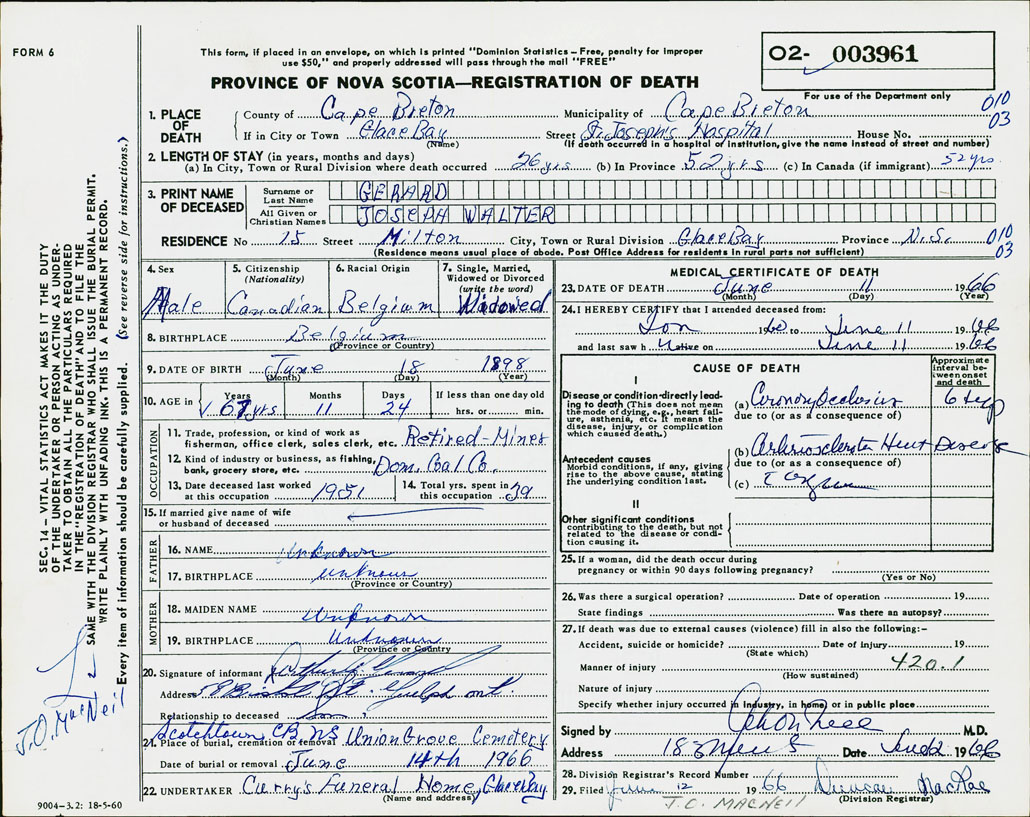 FORM 6
This form, if placed in an envelope, on which is printed "Dominion Statistics – Free, penalty for improper
use $50," and properly addressed will pass through the mail "FREE"
O2- 003961
PROVINCE OF NOVA SCOTIA—REGISTRATION OF DEATH
For use of the Department only
1. PLACE OF DEATH
County of Cape Breton Municipality of Cape Breton 010
If in City or Town Glace Bay Street St. Joseph's Hospital House No. 03
(Name) (If death occurred in a hospital or institution, give the name instead of street and number)
2. LENGTH OF STAY (in years, months and days)
(a) In City, Town or Rural Division where death occurred 26 yrs (b) In Province 52 yrs (c) In Canada (if immigrant) 52 yrs
3. PRINT NAME OF DECEASED
Surname or Last Name GERARD
All Given or Christian Names JOSEPH WALTER
RESIDENCE No 15 Street Milton City, Town or Rural Division Glace Bay Province N.S. 010
(Residence means usual place of abode. Post Office Address for residents in rural parts not sufficient) 03
4. Sex Male
5. Citizenship (Nationality) Canadian
6. Racial Origin Belgium
7. Single, Married, Widowed or Divorced (write the word) Widowed
8. BIRTHPLACE Belgium
(Province or Country)
9. DATE OF BIRTH June 18 1898
(Month) (Day) (Year)
10. AGE in Years 67 yrs Months 11 Days 24 If less than one day old hrs. or min.
OCCUPATION
11. Trade, profession, or kind of work as fisherman, office clerk, sales clerk, etc. Retired-Miner
12. Kind of industry or business, as fishing, bank, grocery store, etc. Dom. Coal Co.
13. Date deceased last worked at this occupation 1951
14. Total yrs. spent in this occupation 29
15. If married give name of wife or husband of deceased
FATHER
16. NAME Unknown
17. BIRTHPLACE unknown
(Province or Country)
MOTHER
18. MAIDEN NAME Unknown
19. BIRTHPLACE Unknown
(Province or Country)
20. Signature of informant
Address St. Guelph ont.
Relationship to deceased Son
Scotchtown CB NS
21. Place of burial, cremation or removal Union Grove Cemetery
Date of burial or removal June 14th 1966
22. UNDERTAKER Curry's Funeral Home, Glace Bay
(Name and address)
MEDICAL CERTIFICATE OF DEATH
23. DATE OF DEATH June 11 1966
(Month) (Day) (Year)
24. I HEREBY CERTIFY that I attended deceased from:
Jan 19 to June 11 1966
and last saw h alive on June 11 1966
CAUSE OF DEATH
Approximate interval between onset and death
I
Disease or condition directly leading to death (This does not mean the mode of dying, e.g., heart failure, asthenia, etc. It means the disease, injury, or complication which caused death.)
(a) Coronary Occlusion
due to (or as a consequence of)
Antecedent causes
Morbid conditions, if any, giving rise to the above cause, stating the underlying condition last.
(b) Arteriosclerotic Heart Disease
due to (or as a consequence of)
(c)
II
Other significant conditions contributing to the death, but not related to the disease or condition causing it.
25. If a woman, did the death occur during pregnancy or within 90 days following pregnancy?
(Yes or No)
26. Was there a surgical operation? Date of operation 19
State findings Was there an autopsy?
27. If death was due to external causes (violence) fill in also the following:–
Accident, suicide or homicide? Date of injury 19
(State which)
Manner of injury 420.1
(How sustained)
Nature of injury
Specify whether injury occurred in industry, in home, or in public place
Signed by M.D.
Address Date 1966
28. Division Registrar's Record Number
29. Filed June 12 1966 Duncan MacRae
J.C. MACNEIL (Division Registrar)
SEC. 14 – VITAL STATISTICS ACT MAKES IT THE DUTY
OF THE UNDERTAKER OR PERSON ACTING AS UNDERTAKER TO OBTAIN ALL THE PARTICULARS REQUIRED
IN THE "REGISTRATION OF DEATH" AND TO FILE THE
SAME WITH THE DIVISION REGISTRAR WHO SHALL ISSUE THE BURIAL PERMIT.
WRITE PLAINLY WITH UNFADING INK. THIS IS A PERMANENT RECORD.
Every item of information should be carefully supplied. (See reverse side for instructions.)
J.O. MacNeil
9004-3.2: 18-5-60